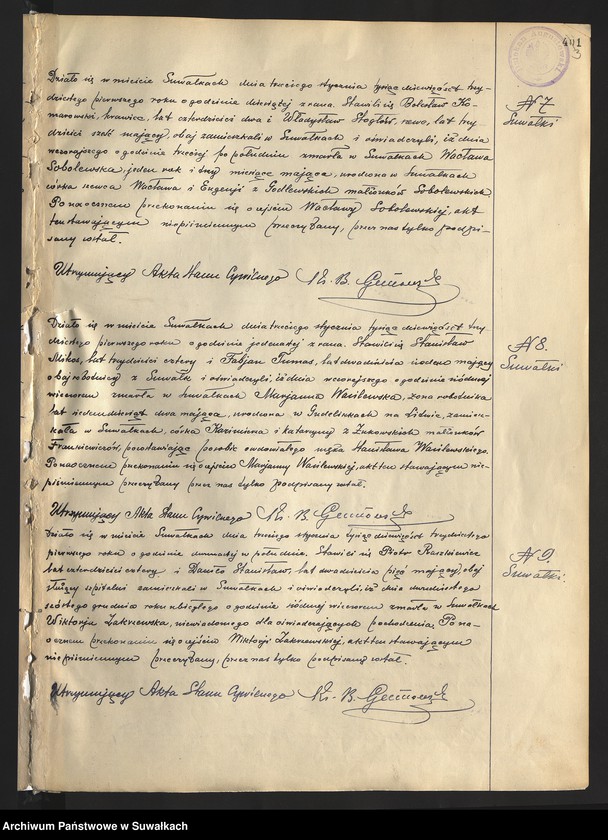 441
3
Działo się w mieście Suwałkach dnia trzeciego stycznia tysiąc dziewięćset trzy-
dziestego pierwszego roku o godzinie dziesiątej z rana. Stawili się Bolesław Ko-
marowski, krawiec, lat czterdzieści dwa i Władysław szewc, lat trzy
dzieści sześć mający, obaj zamieszkali w Suwałkach i oświadczyli, iż dnia
wczorajszego o godzinie trzeciej po południu zmarła w Suwałkach Wacława
Sobolewska, jeden rok i trzy miesiące mająca, urodzona w Suwałkach
córka szewca Wacława i Eugenji z Godlewskich małżonków Sobolewskich
Po naocznem przekonaniu się o zejściu Wacławy Sobolewskiej, akt
ten stawającym niepiśmiennym przeczytany, przez nas tylko podpi-
sany został.
Utrzymujący Akta Stanu Cywilnego Ks. B.
N 7
Suwałki
Działo się w mieście Suwałkach dnia trzeciego stycznia tysiąc dziewięćset trzy
dziestego pierwszego roku o godzinie jedenastej z rana. Stawili się Stanisław
Mikos, lat trzydzieści cztery i Fabjan Tumas, lat dwadzieścia siedem mający
obaj robotnicy z Suwałk i oświadczyli, iż dnia wczorajszego o godzinie siódmej
wieczorem zmarła w Suwałkach Marjanna Wasilewska, żona robotnika
lat siedemdziesiąt dwa mająca, urodzona w na Litwie, zamiesz-
kała w Suwałkach, córka Kazimierza i Katarzyny z Żukowskich małżonków
Frankiewiczów, pozostawiając po sobie owdowiałego męża Stanisława Wasilewskiego.
Po naocznem przekonaniu się o zejściu Marjanny Wasilewskiej, akt ten stawającym nie-
piśmiennym przeczytany przez nas tylko podpisany został.
Utrzymujący Akta Stanu Cywilnego Ks. B.
N 8.
Suwałki
Działo się w mieście Suwałkach dnia trzeciego stycznia tysiąc dziewięćset trzydziestego
pierwszego roku o godzinie dwunastej w południe. Stawili się Piotr Paszkiewicz
lat czterdzieści cztery i Daniło Stanisław, lat dwadzieścia pięć mający, obaj
słudzy szpitalni zamieszkali w Suwałkach i oświadczyli, iż dnia dwudziestego
szóstego grudnia roku ubiegłego o godzinie siódmej wieczorem zmarła w Suwałkach
Wiktorja Zakrzewska, niewiadomego dla oświadczających pochodzenia Po na-
ocznem przekonaniu się o zejściu Wiktorji Zakrzewskiej, akt ten stawającym
niepiśmiennym przeczytany, przez nas tylko podpisany został.
Utrzymujący Akta Stanu Cywilnego Ks. B.
N 9.
Suwałki.
Archiwum Państwowe w Suwałkach